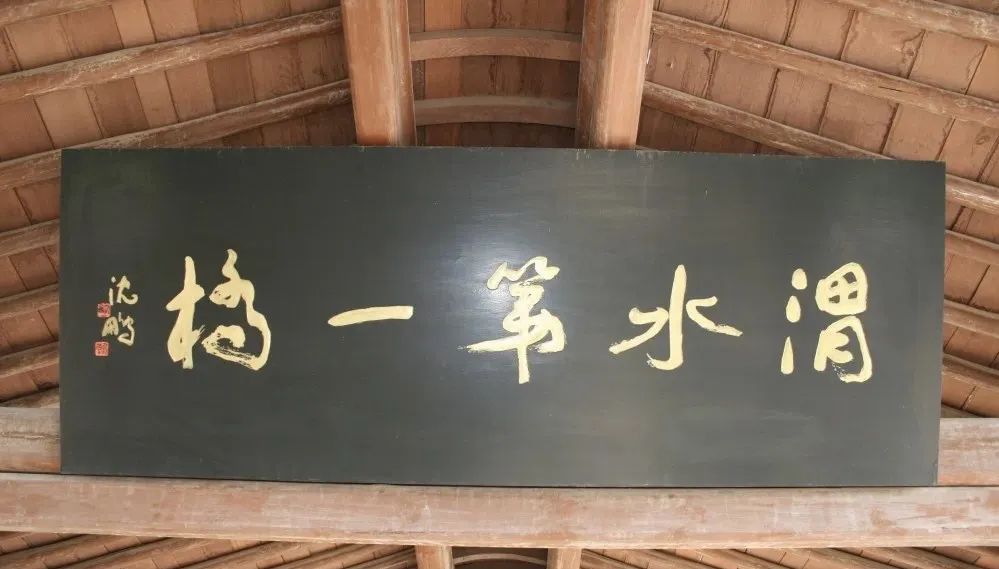 渭水第一橋
沈鹏